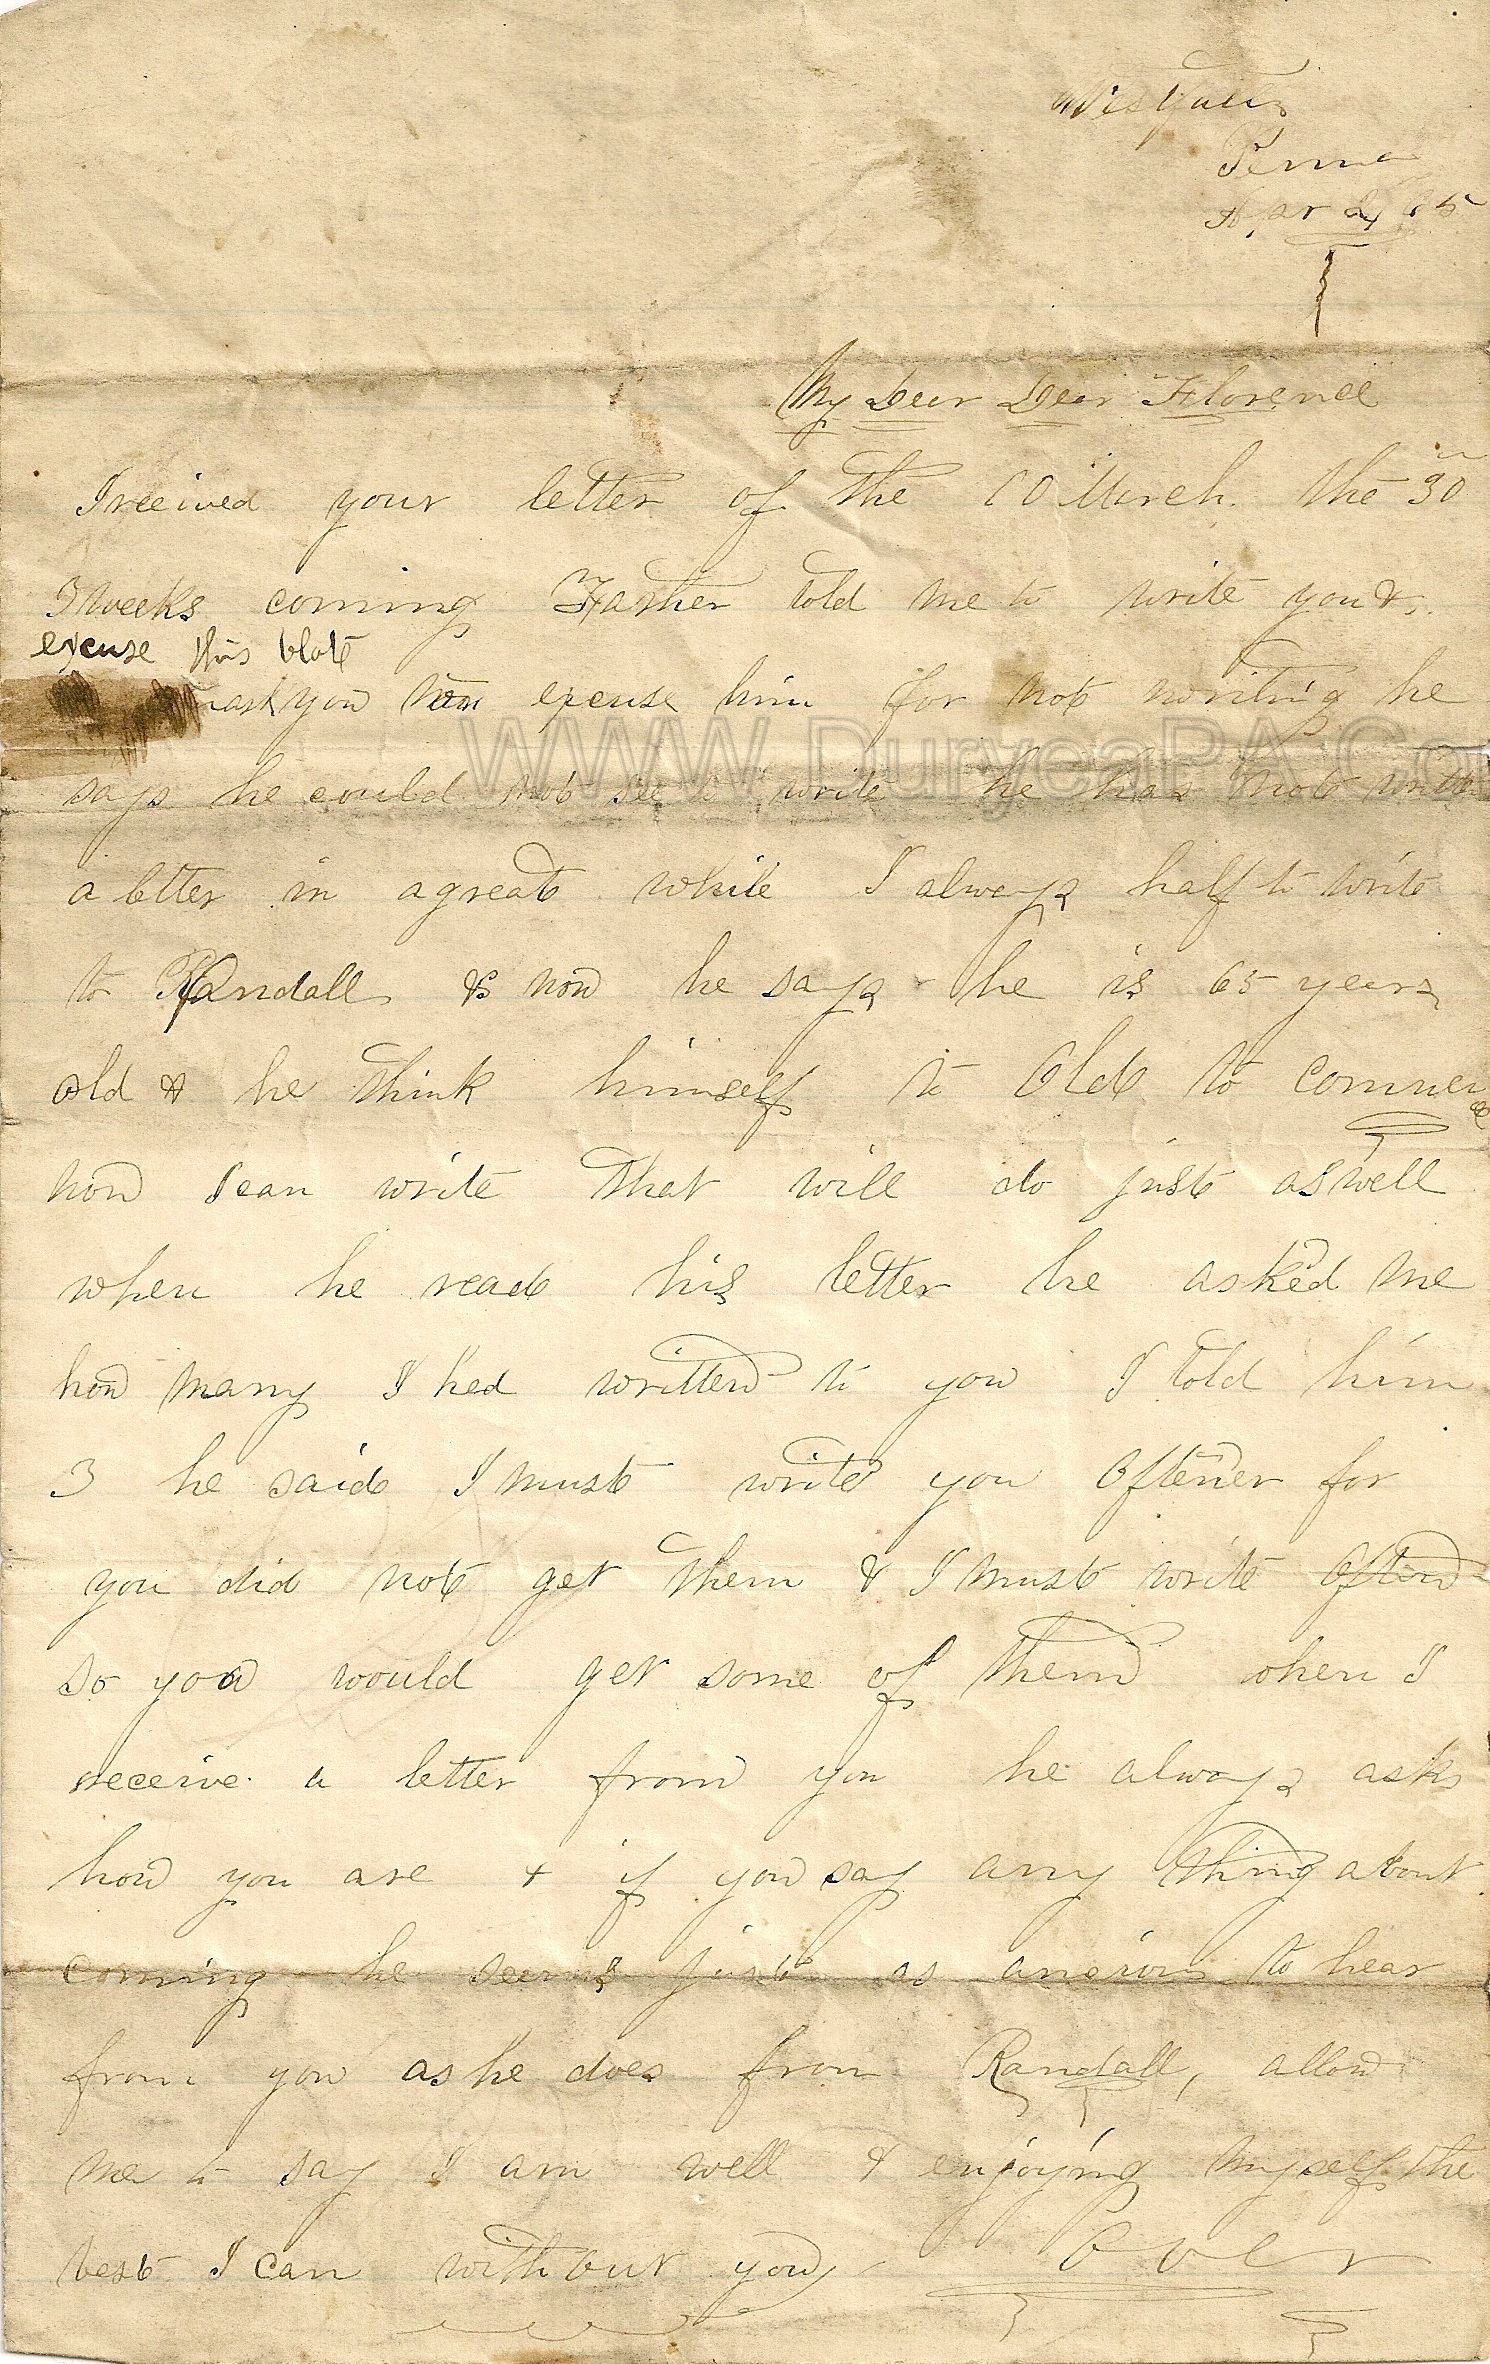 Penna
Apr 2, 65
My Dear Dear Florence
I received your letter of the 10 March. the 30
3 weeks coming Father told me to write you &
excuse this blot
ask you to excuse him for not writing he
says he could not see to write he has not writte
a letter in a great while I always half to write
to Randall & now he says he is 65 years
old & he think himself to Old to commence
now I can write that will do just as well
when he read his letter he asked me
how many I had written to you I told him
3 he said I must write you oftener for
you did not get them & I must write often
so you would get some of them when I
receive a letter from you he always asks
how you are & if you say any thing about
coming he seems just as anxious to hear
from you as he does from Randall, allow
me to say I am well & enjoying myself the
best I can without you,
Over
WWW.DuryeaPA.Co